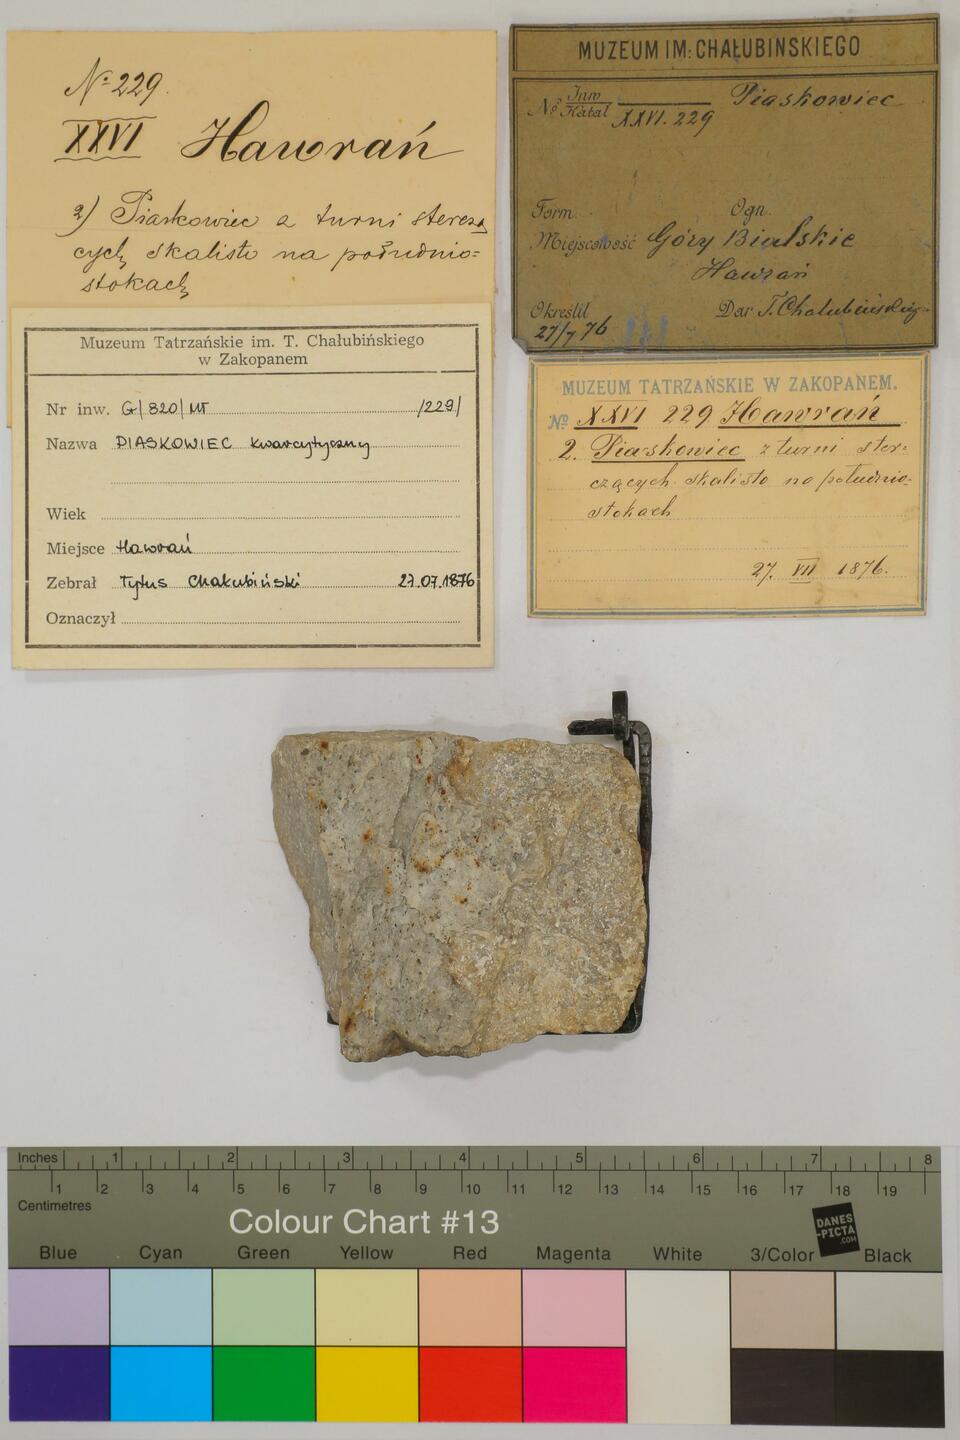 No 229.
XXVI Hawrań
2) Piaskowiec z turni stercza
cych skalisto na południo=
stokach
MUZEUM IM: CHAŁUBINSKIEGO
No Inw Katal XXVI. 229 Piaskowiec
Form. Ogn.
Miejscowość Góry Bialskie
Hawrań
Określił Dar T. Chałubińskieg.
27/7 76
Muzeum Tatrzańskie im. T. Chałubińskiego
w Zakopanem
Nr inw. G/820/MT /229/
Nazwa PIASKOWIEC kwarcytyczny
Wiek
Miejsce Hawrań
Zebrał Tytus Chałubiński 27.07.1876
Oznaczył
MUZEUM TATRZAŃSKIE W ZAKOPANEM.
No XXVI 229 Hawrań
2. Piaskowiec z turni ster-
czących skalisto na południo-
stokach
27. VII 1876.
Inches 1 2 3 4 5 6 7 8
1 2 3 4 5 6 7 8 9 10 11 12 13 14 15 16 17 18 19
Centimetres
Colour Chart #13
DANES
-PICTA
.COM
Blue Cyan Green Yellow Red Magenta White 3/Color Black